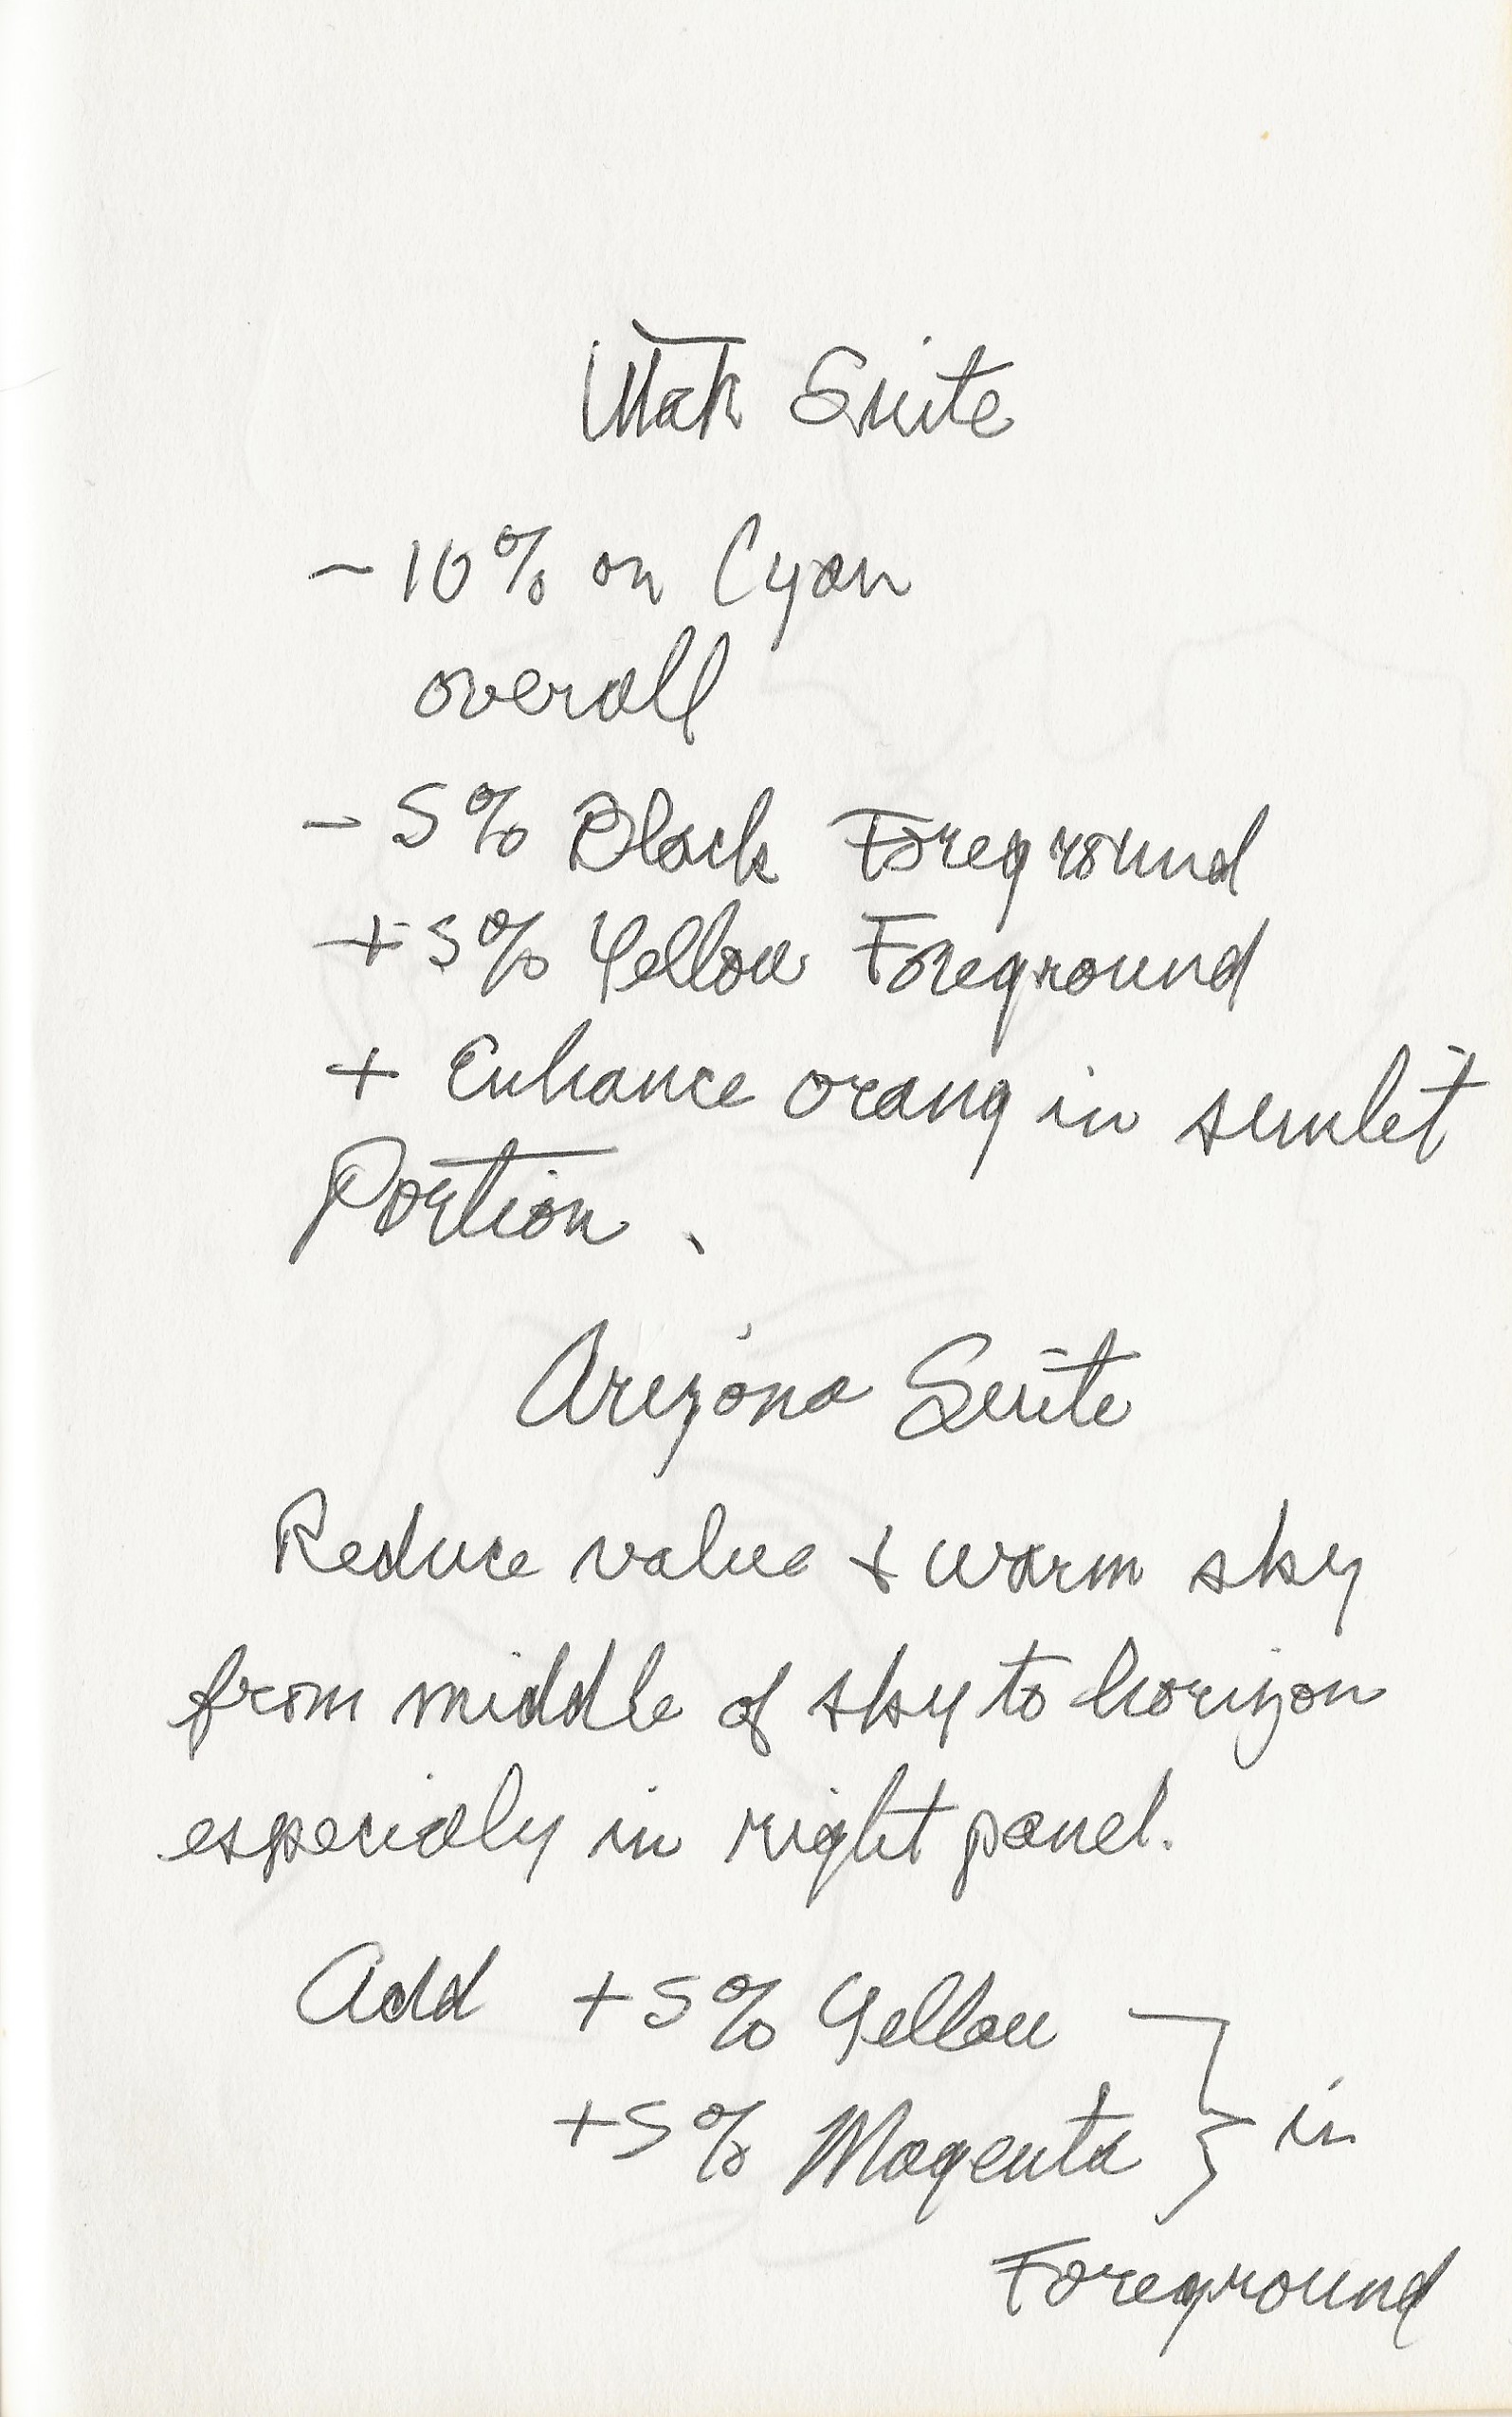 Utah Suite
- 10% on Cyan
overall
- 5% Black Foreground
+ 5% Yellow Foreground
+ Enhance orang in sunlit
Portion.
Arizona Suite
Reduce value + warm sky
from middle of sky to horizon
especially in right panel.
Add +5% Yellow
+5% Magenta } in
Foreground